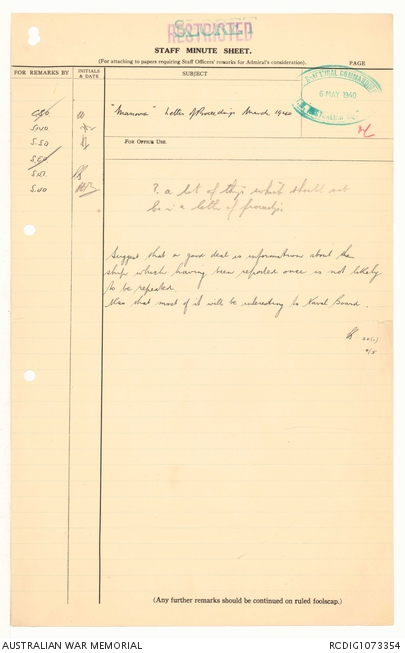 SECRET
RESTRICTED
STAFF MINUTE SHEET.
(For attaching to papers requiring Staff Officers' remarks for Admiral's consideration).
PAGE
FOR REMARKS BY
INITIALS
& DATE
SUBJECT
6 MAY 1940
"Manoora" Letter of Proceedings March 1940
FOR OFFICE USE.
CSO
SOO
SSO
? a lot of things which should not
be in a letter of proceedings
Suggest that a good deal is information about the
ship which having been reported once is not likely
to be repeated.
Also that most of it will be interesting to Naval Board.
(Any further remarks should be continued on ruled foolscap.)
AUSTRALIAN WAR MEMORIAL
RCDIG1073354